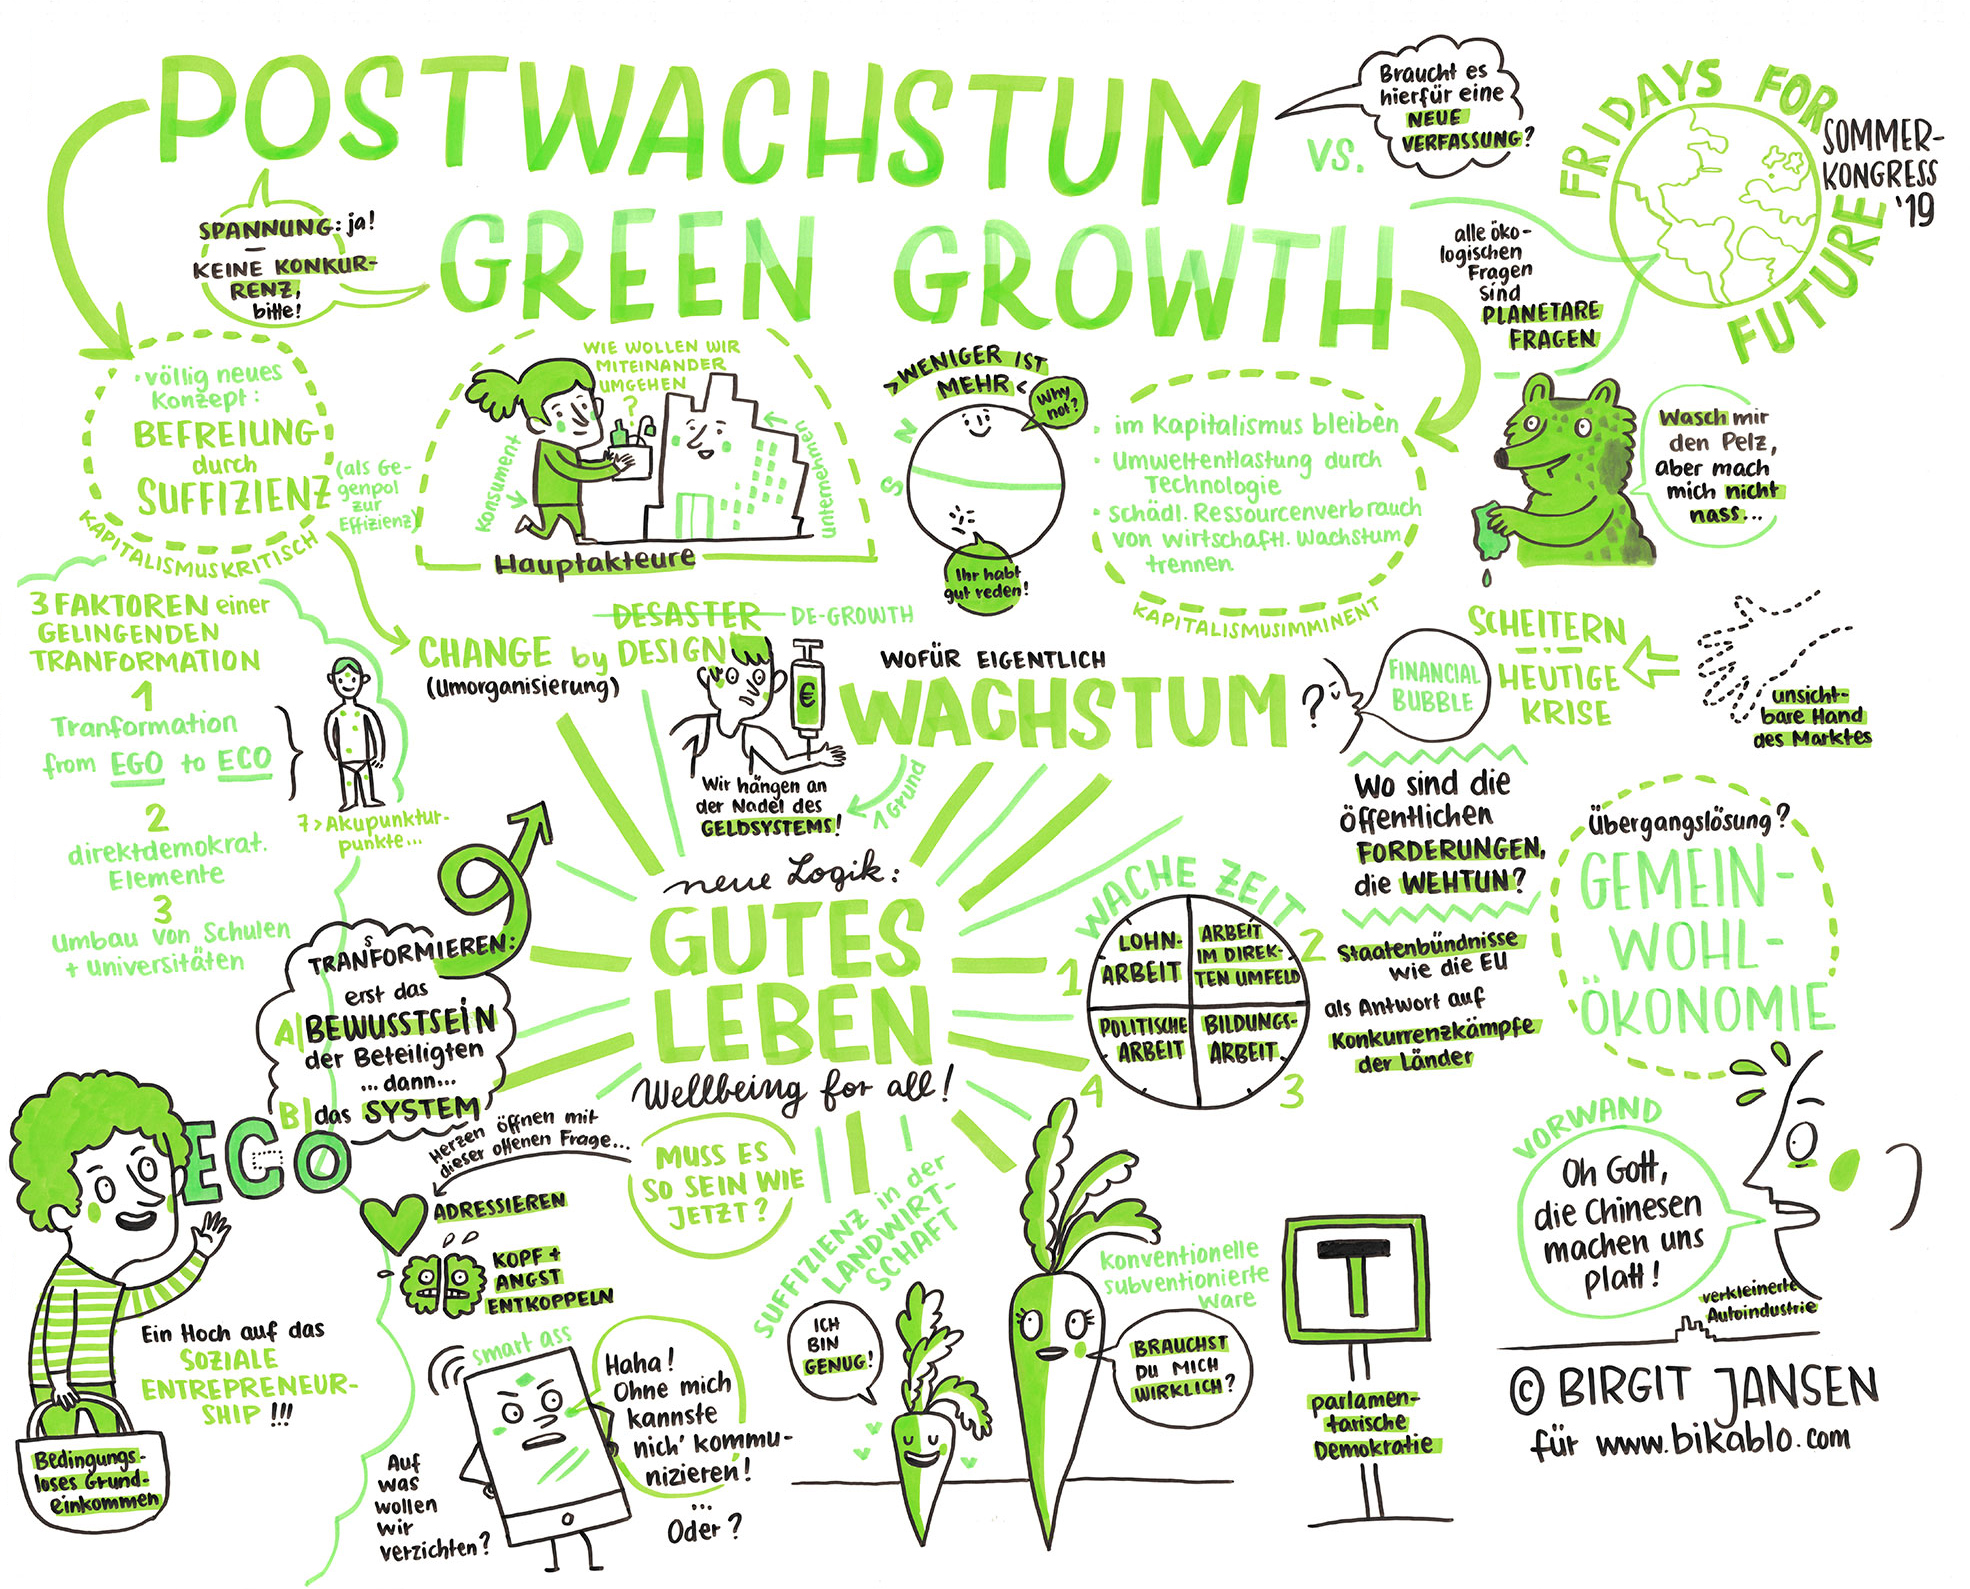 POSTWACHSTUM
VS.
GREEN GROWTH
Braucht es
hierfür eine
NEUE
VERFASSUNG?
FRIDAYS FOR
FUTURE
SOMMER-
KONGRESS
'19
SPANNUNG: ja!
–
KEINE KONKUR-
RENZ,
bitte!
alle öko-
logischen
Fragen
sind
PLANETARE
FRAGEN
• völlig neues
Konzept:
BEFREIUNG
durch
SUFFIZIENZ
(als Ge-
genpol
zur
Effizienz)
KAPITALISMUSKRITISCH
WIE WOLLEN WIR
MITEINANDER
UMGEHEN
?
Konsument
unternehmen
Hauptakteure
>WENIGER IST
MEHR<
Why
not?
N
S
Ihr habt
gut reden!
• im Kapitalismus bleiben
• Umweltentlastung durch
Technologie
• schädl. Ressourcenverbrauch
von wirtschaftl. Wachstum
trennen
KAPITALISMUSIMMINENT
Wasch mir
den Pelz,
aber mach
mich nicht
nass...
3 FAKTOREN einer
GELINGENDEN
TRANFORMATION
1
Tranformation
from EGO to ECO
2
direktdemokrat.
Elemente
3
Umbau von Schulen
+ universitäten
7 > Akupunktur-
punkte...
DESASTER DE-GROWTH
CHANGE by DESIGN
(Umorganisierung)
€
Wir hängen an
der Nadel des
GELDSYSTEMS!
1 Grund
WOFÜR EIGENTLICH
WACHSTUM
?
FINANCIAL
BUBBLE
SCHEITERN
HEUTIGE
KRISE
unsicht-
bare Hand
des Marktes
Wo sind die
öffentlichen
FORDERUNGEN,
die WEHTUN?
Übergangslösung?
GEMEIN-
WOHL-
ÖKONOMIE
neue Logik:
GUTES
LEBEN
Wellbeing for all!
WACHE ZEIT
1
LOHN-
ARBEIT
2
ARBEIT
IM DIREK-
TEN UMFELD
3
BILDUNGS-
ARBEIT
4
POLITISCHE
ARBEIT
Staatenbündnisse
wie die EU
als Antwort auf
Konkurrenzkämpfe
der Länder
TRANSFORMIEREN:
erst das
A| BEWUSSTSEIN
der Beteiligten
... dann...
B| das SYSTEM
EGO
Herzen öffnen mit
dieser offenen Frage...
MUSS ES
SO SEIN WIE
JETZT?
ADRESSIEREN
KOPF +
ANGST
ENTKOPPELN
Ein Hoch auf das
SOZIALE
ENTREPRENEUR-
SHIP !!!
Bedingungs-
loses Grund-
einkommen
smart ass
Haha!
Ohne mich
kannste
nich' kommu-
nizieren!
...
Oder?
Auf
was
wollen
wir
verzichten?
SUFFIZIENZ in der
LANDWIRT-
SCHAFT
ICH
BIN
GENUG!
konventionelle
subventionierte
Ware
BRAUCHST
DU MICH
WIRKLICH?
parlamen-
tarische
Demokratie
VORWAND
Oh Gott,
die Chinesen
machen uns
platt!
verkleinerte
Autoindustrie
© BIRGIT JANSEN
für www.bikablo.com